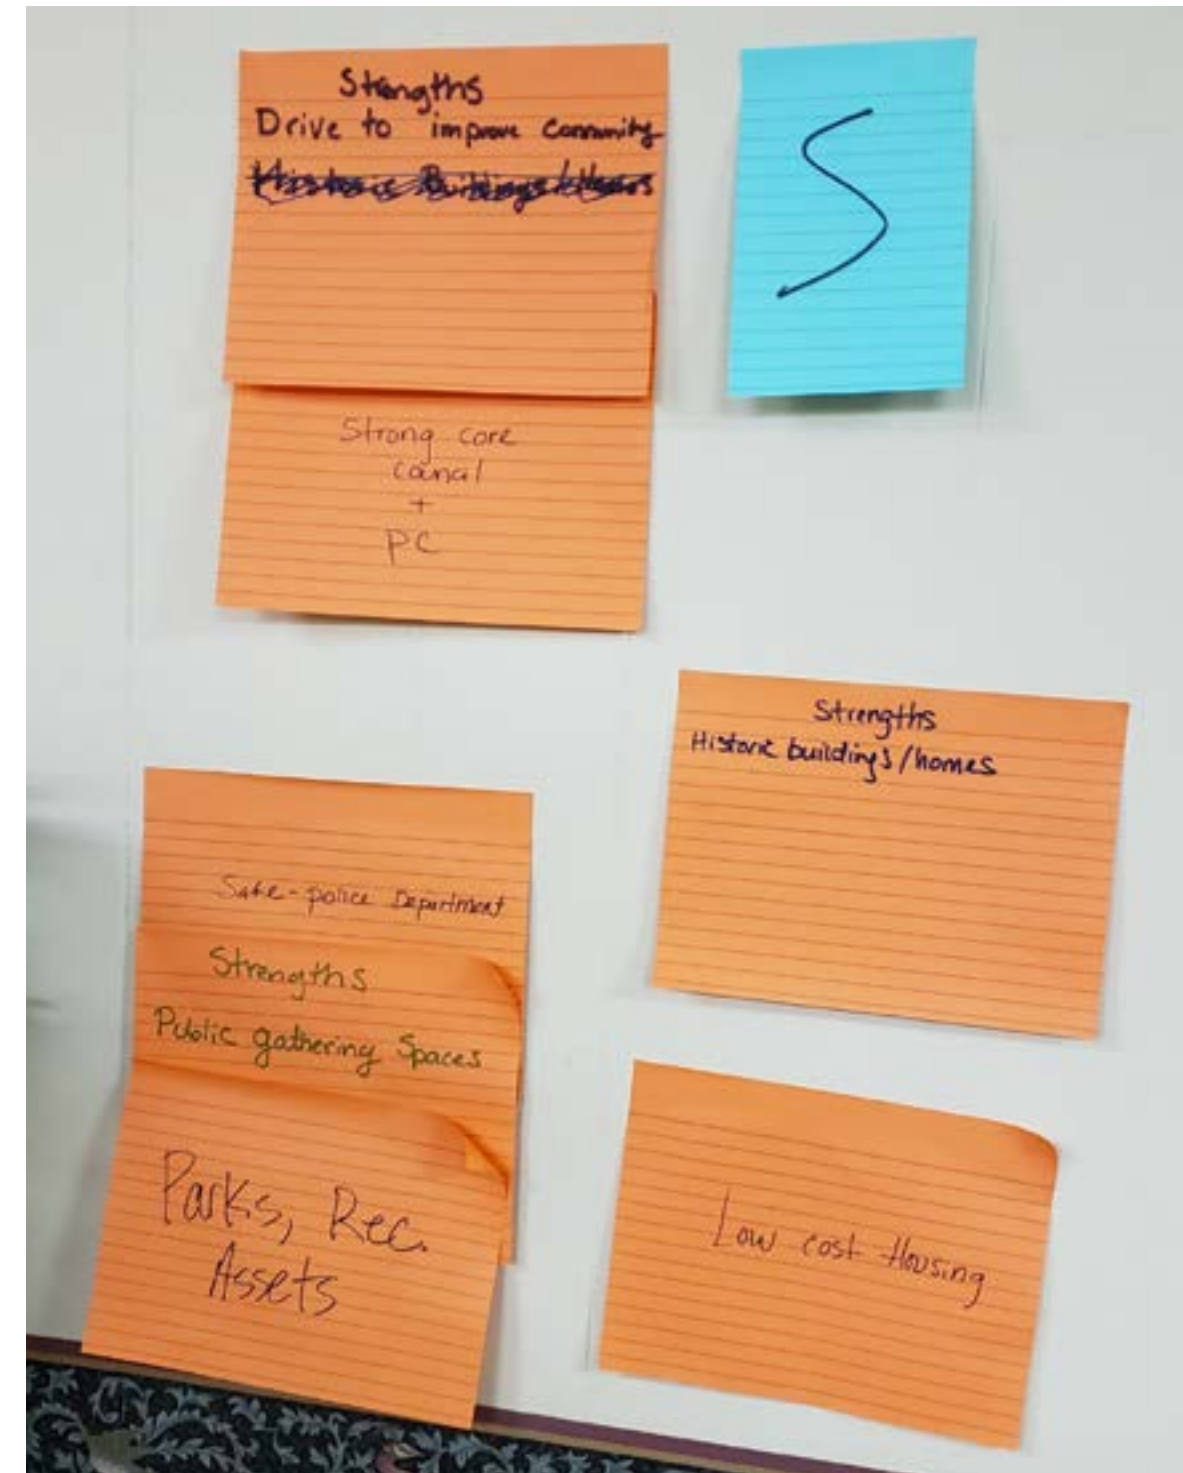 Strengths
Drive to improve Community
Historic Buildings/Homes
S
Strong core
canal
+
PC
Strengths
Historic buildings/homes
Safe-police Department
Strengths
Public gathering Spaces
Parks, Rec.
Assets
Low cost Housing